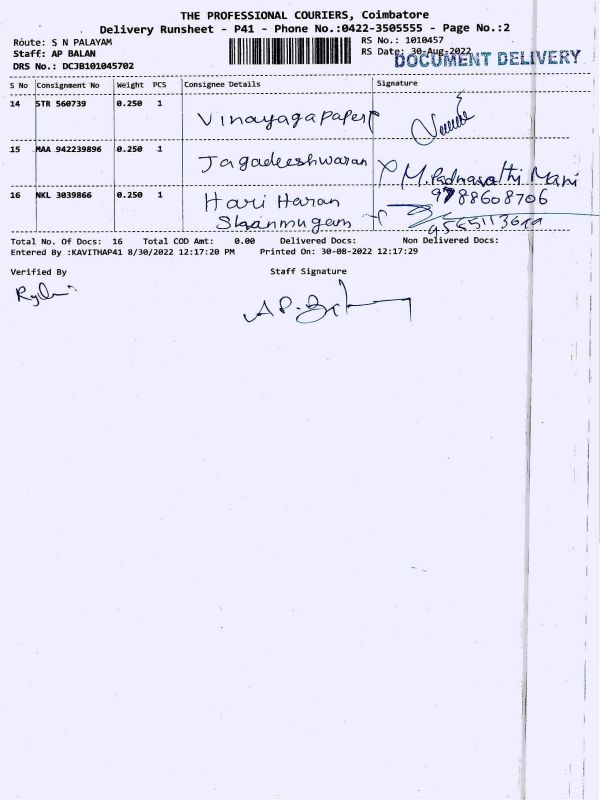 THE PROFESSIONAL COURIERS, Coimbatore
Delivery Runsheet - P41 - Phone No.:0422-3505555 - Page No.:2
Route: S N PALAYAM
RS No.: 1010457
Staff: AP BALAN
RS Date: 30-Aug-2022
DOCUMENT DELIVERY
DRS No.: DCJB101045702
S No Consignment No Weight PCS Consignee Details Signature
14 STR 560739 0.250 1 Vinayagapapers
15 MAA 942239896 0.250 1 Jagadeeshwaran M. Padmavathi Mani
9788608706
16 NKL 3039866 0.250 1 Hari Haran
Shanmugam
Total No. Of Docs: 16 Total COD Amt: 0.00 Delivered Docs: Non Delivered Docs:
Entered By :KAVITHAP41 8/30/2022 12:17:20 PM Printed On: 30-08-2022 12:17:29
Verified By Staff Signature